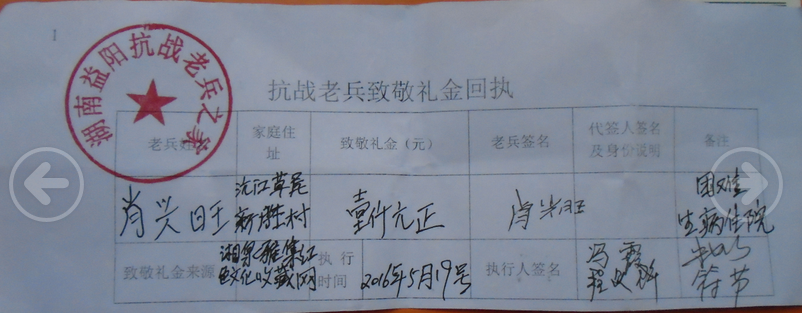 1
湖南益阳抗战老兵之家
抗战老兵致敬礼金回执
老兵姓 家庭住址 致敬礼金（元） 老兵签名 代签人签名及身份说明 备注
肖兴旺 沅江草尾新胜村 壹仟元正 肖兴旺 生病住院
致敬礼金来源 湘泉雅集红色文化收藏网 执行时间 2016年5月19号 执行人签名 冯霞